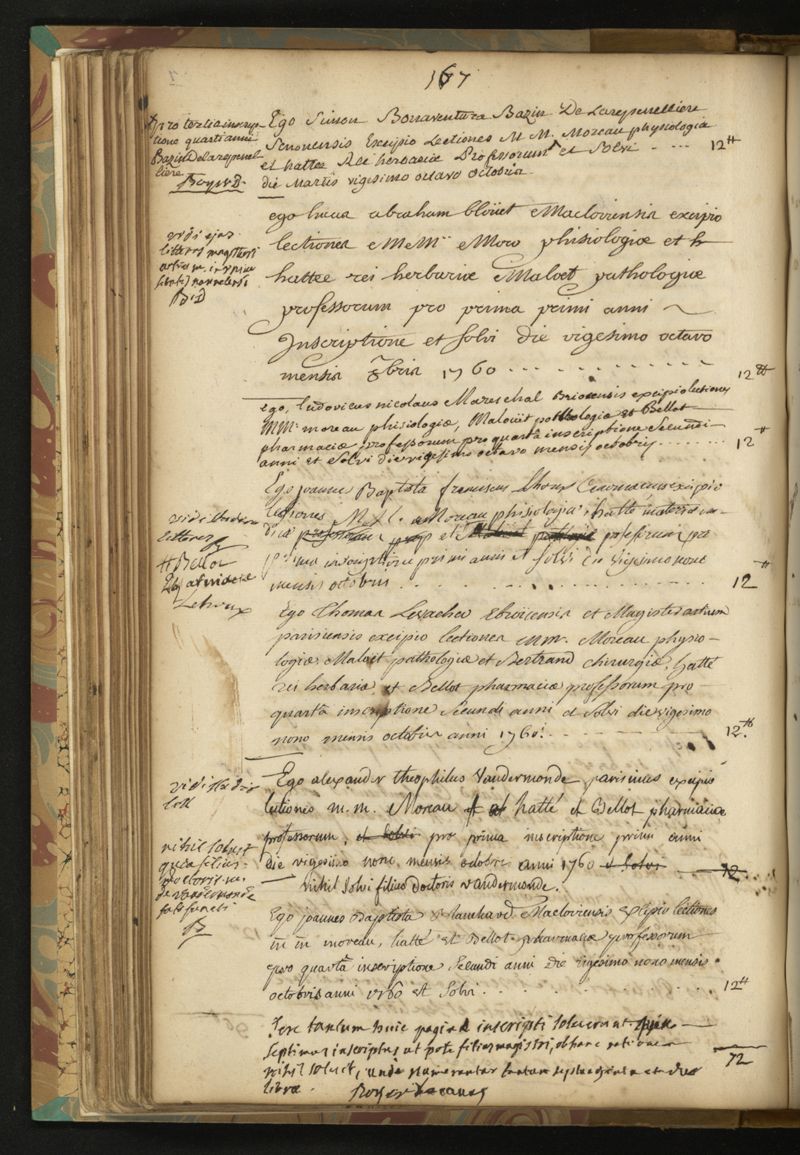 167
pro tertia inscrip-
tione quarti anni
Bazin De larepenel-
liere
Boyer D.
Ego Simon Bonaventura Bazin De Larepenelliere
Senonensis Excipio Lectiones M M. Moreau physiologiæ
et hattee Rei herbariæ Professorum et Solvi - ... 12 ₶
die Martis vigesimo octavo octobris.
vidi ejus
litteras magisterii
artium in
B. D
ego lucas abraham bloüet Macloviensis excipio
lectiones MMrs Moro phisiologiæ et h
hattee rei herbariæ Maloet pathologiæ
professorum pro prima primi anni ~
Inscriptione et solvi die vigesimo octavo
mensis 8bris 1760 ............... 12 ₶
ego, ludovicus nicolaus Mareschal Briocensis excipio lectiones
MMrs moreau phisiologiæ, Malouët pathologiæ et Bellot
pharmaciæ professorum pro quartâ inscriptione secundi
anni et solvi die vigesimo octavo mensis octobris ....... 12 ₶
vidi
litteras
Bellot
Leroux
Ego joannes Baptista franciscus excipio
lectiones M. Moreau phisiologiæ, hatté materiæ me-
dicæ et professorum pro
prima inscriptione primi anni et solvi die vigesimo nono
mensis octobris . . . . . . . . . . 12 ₶
Ego Thomas Levacher Ebroicensis et Magister artium
parisiensis excipio lectiones mm. Moreau physio-
logiæ, Maloët pathologiæ et Bertrand chirurgiæ, hatté
rei herbariæ, et Bellot pharmaciæ professorum pro
quartâ inscriptione secundi anni et solvi die vigesimo
nono mensis octobris anni 1760. - - - - - - 12 ₶.
vidi
nihil solvit
quia filius
doctoris m.
de vandermonde
B
Ego alexander theophilus Vandermonde parisinus excipio
lectiones m. m. Moreau et hatté et Bellot pharmaciæ
professorum, et solvi pro prima inscriptione primi anni
die vigesimo nono, mensis octobris anni 1760 et solvi - 12 . . .
nihil solvi filius doctoris vandermonde.
Ego joannes Baptista Macloviensis excipio lectiones
m̄ m̄ moreau, hatté et Bellot pharmaciæ professorum
pro quartâ inscriptione secundi anni die vigesimo nono mensis
octobris anni 1760 et solvi . . . . . . 12 ₶
sex tantum huic paginæ inscripti solverunt quia
septimus inscriptus ut pote filius magistri, ob hanc rationem
nihil solvit, unde numerantur tantum septuaginta et duæ 72
libræ. Boyer decanus